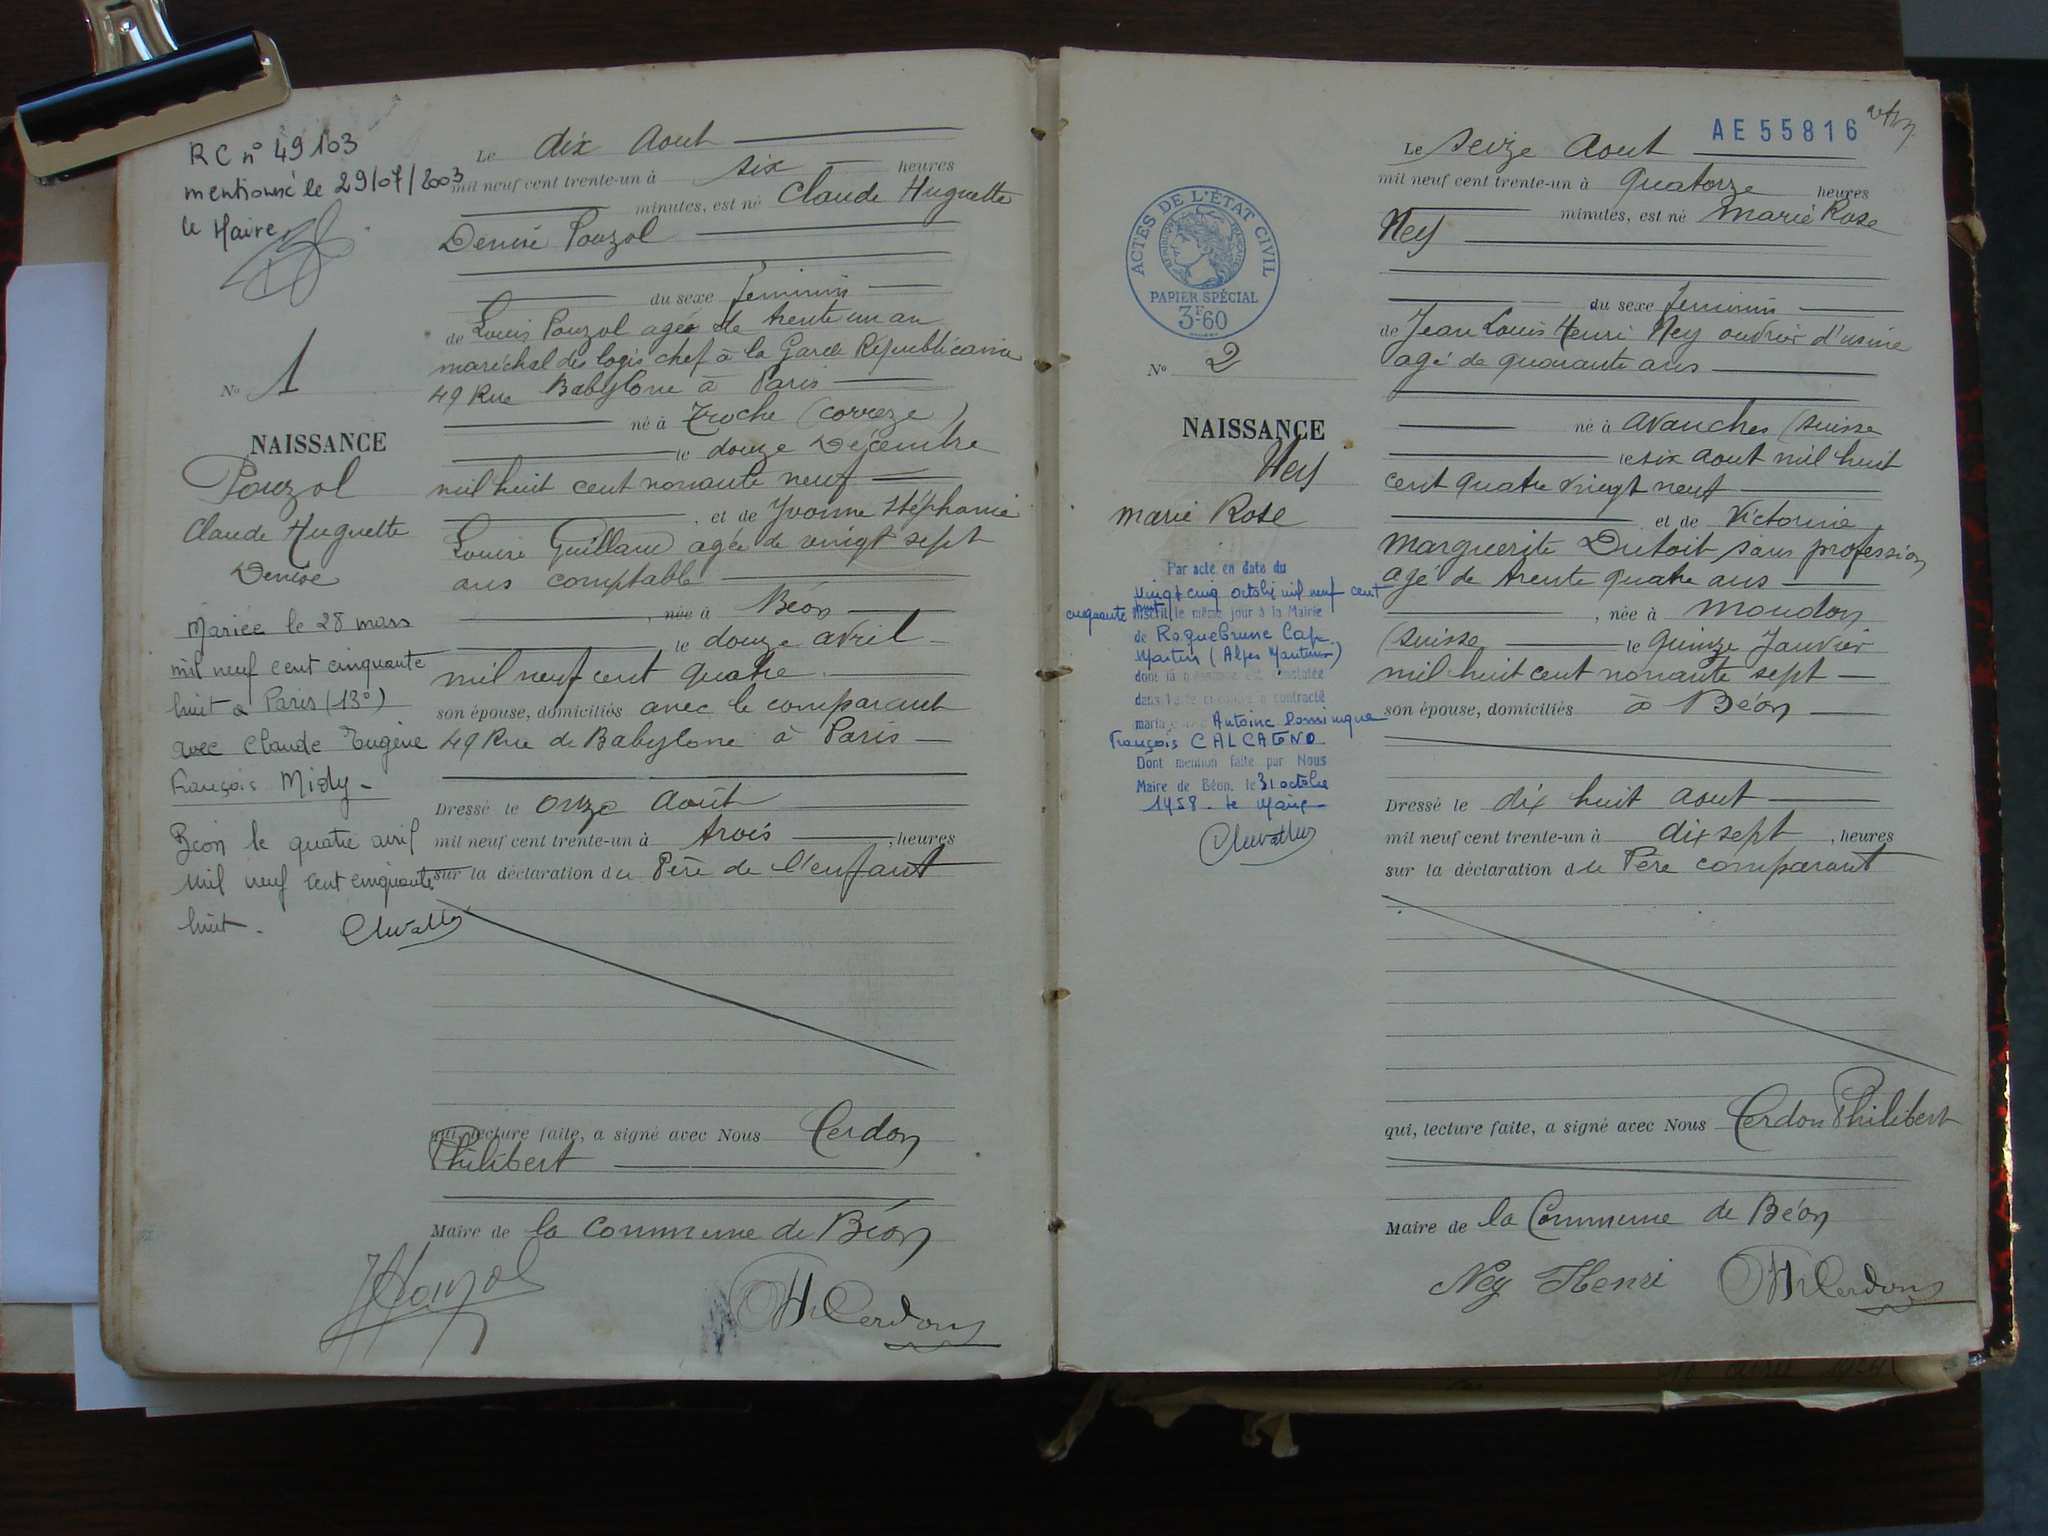 RC n° 49103
mentionné le 29/07/2003
le Maire,
N° 1
NAISSANCE
Pouzol
Claude Huguette
Denise
Mariée le 28 mars
mil neuf cent cinquante
huit à Paris (13°)
avec Claude Eugène
François Midy -
Béon le quatre avril
mil neuf cent cinquante
huit.
Le dix Aout
mil neuf cent trente-un à six heures
minutes, est né Claude Huguette
Denise Pouzol
du sexe feminin
de Louis Pouzol agé de trente un an
maréchal des logis chef à la Garde Républicaine
49 Rue Babylone à Paris
né à Troche (Correze)
le douze Décembre
mil huit cent nonante neuf
, et de Yvonne Stéphanie
Louise Guillaud agée de vingt sept
ans comptable
, née à Béon
le douze avril
mil neuf cent quatre
son épouse, domiciliés avec le comparant
49 Rue de Babylone à Paris
Dressé le onze Août
mil neuf cent trente-un à trois , heures
sur la déclaration du Père de l'enfant
qui, lecture faite, a signé avec Nous Cerdon
Philibert
Maire de la commune de Béon
Pouzol
Ph Cerdon
AE 55816
ACTES DE L'ÉTAT CIVIL
RÉPUBLIQUE FRANÇAISE
PAPIER SPÉCIAL
3F60
N° 2
NAISSANCE
Ney
Marie Rose
Par acte en date du
vingt cinq octobre mil neuf cent
cinquante huit inscrit le même jour à la Mairie
de Roquebrune Cap
Martin (Alpes Maritimes)
dans
a contracté
mariage Antoine Dominique
François CALCAGNO
Dont mention faite par Nous
Maire de Béon, le 31 octobre
1958 - le Maire -
Le seize Aout
mil neuf cent trente-un à Quatorze heures
minutes, est né Marie Rose
Ney
du sexe feminin
de Jean Louis Henri Ney ouvrier d'usine
agé de quarante ans
né à Avanches (Suisse
le six Aout mil huit
cent quatre vingt neuf
et de Victorine
Marguerite Dutoit sans profession
agé de trente quatre ans
, née à Moudon
(Suisse le Quinze Janvier
mil huit cent nonante sept
son épouse, domiciliés à Béon
Dressé le dix huit Aout
mil neuf cent trente-un à dix sept , heures
sur la déclaration du Père comparant
qui, lecture faite, a signé avec Nous Cerdon Philibert
Maire de la Commune de Béon
Ney Henri
Ph Cerdon